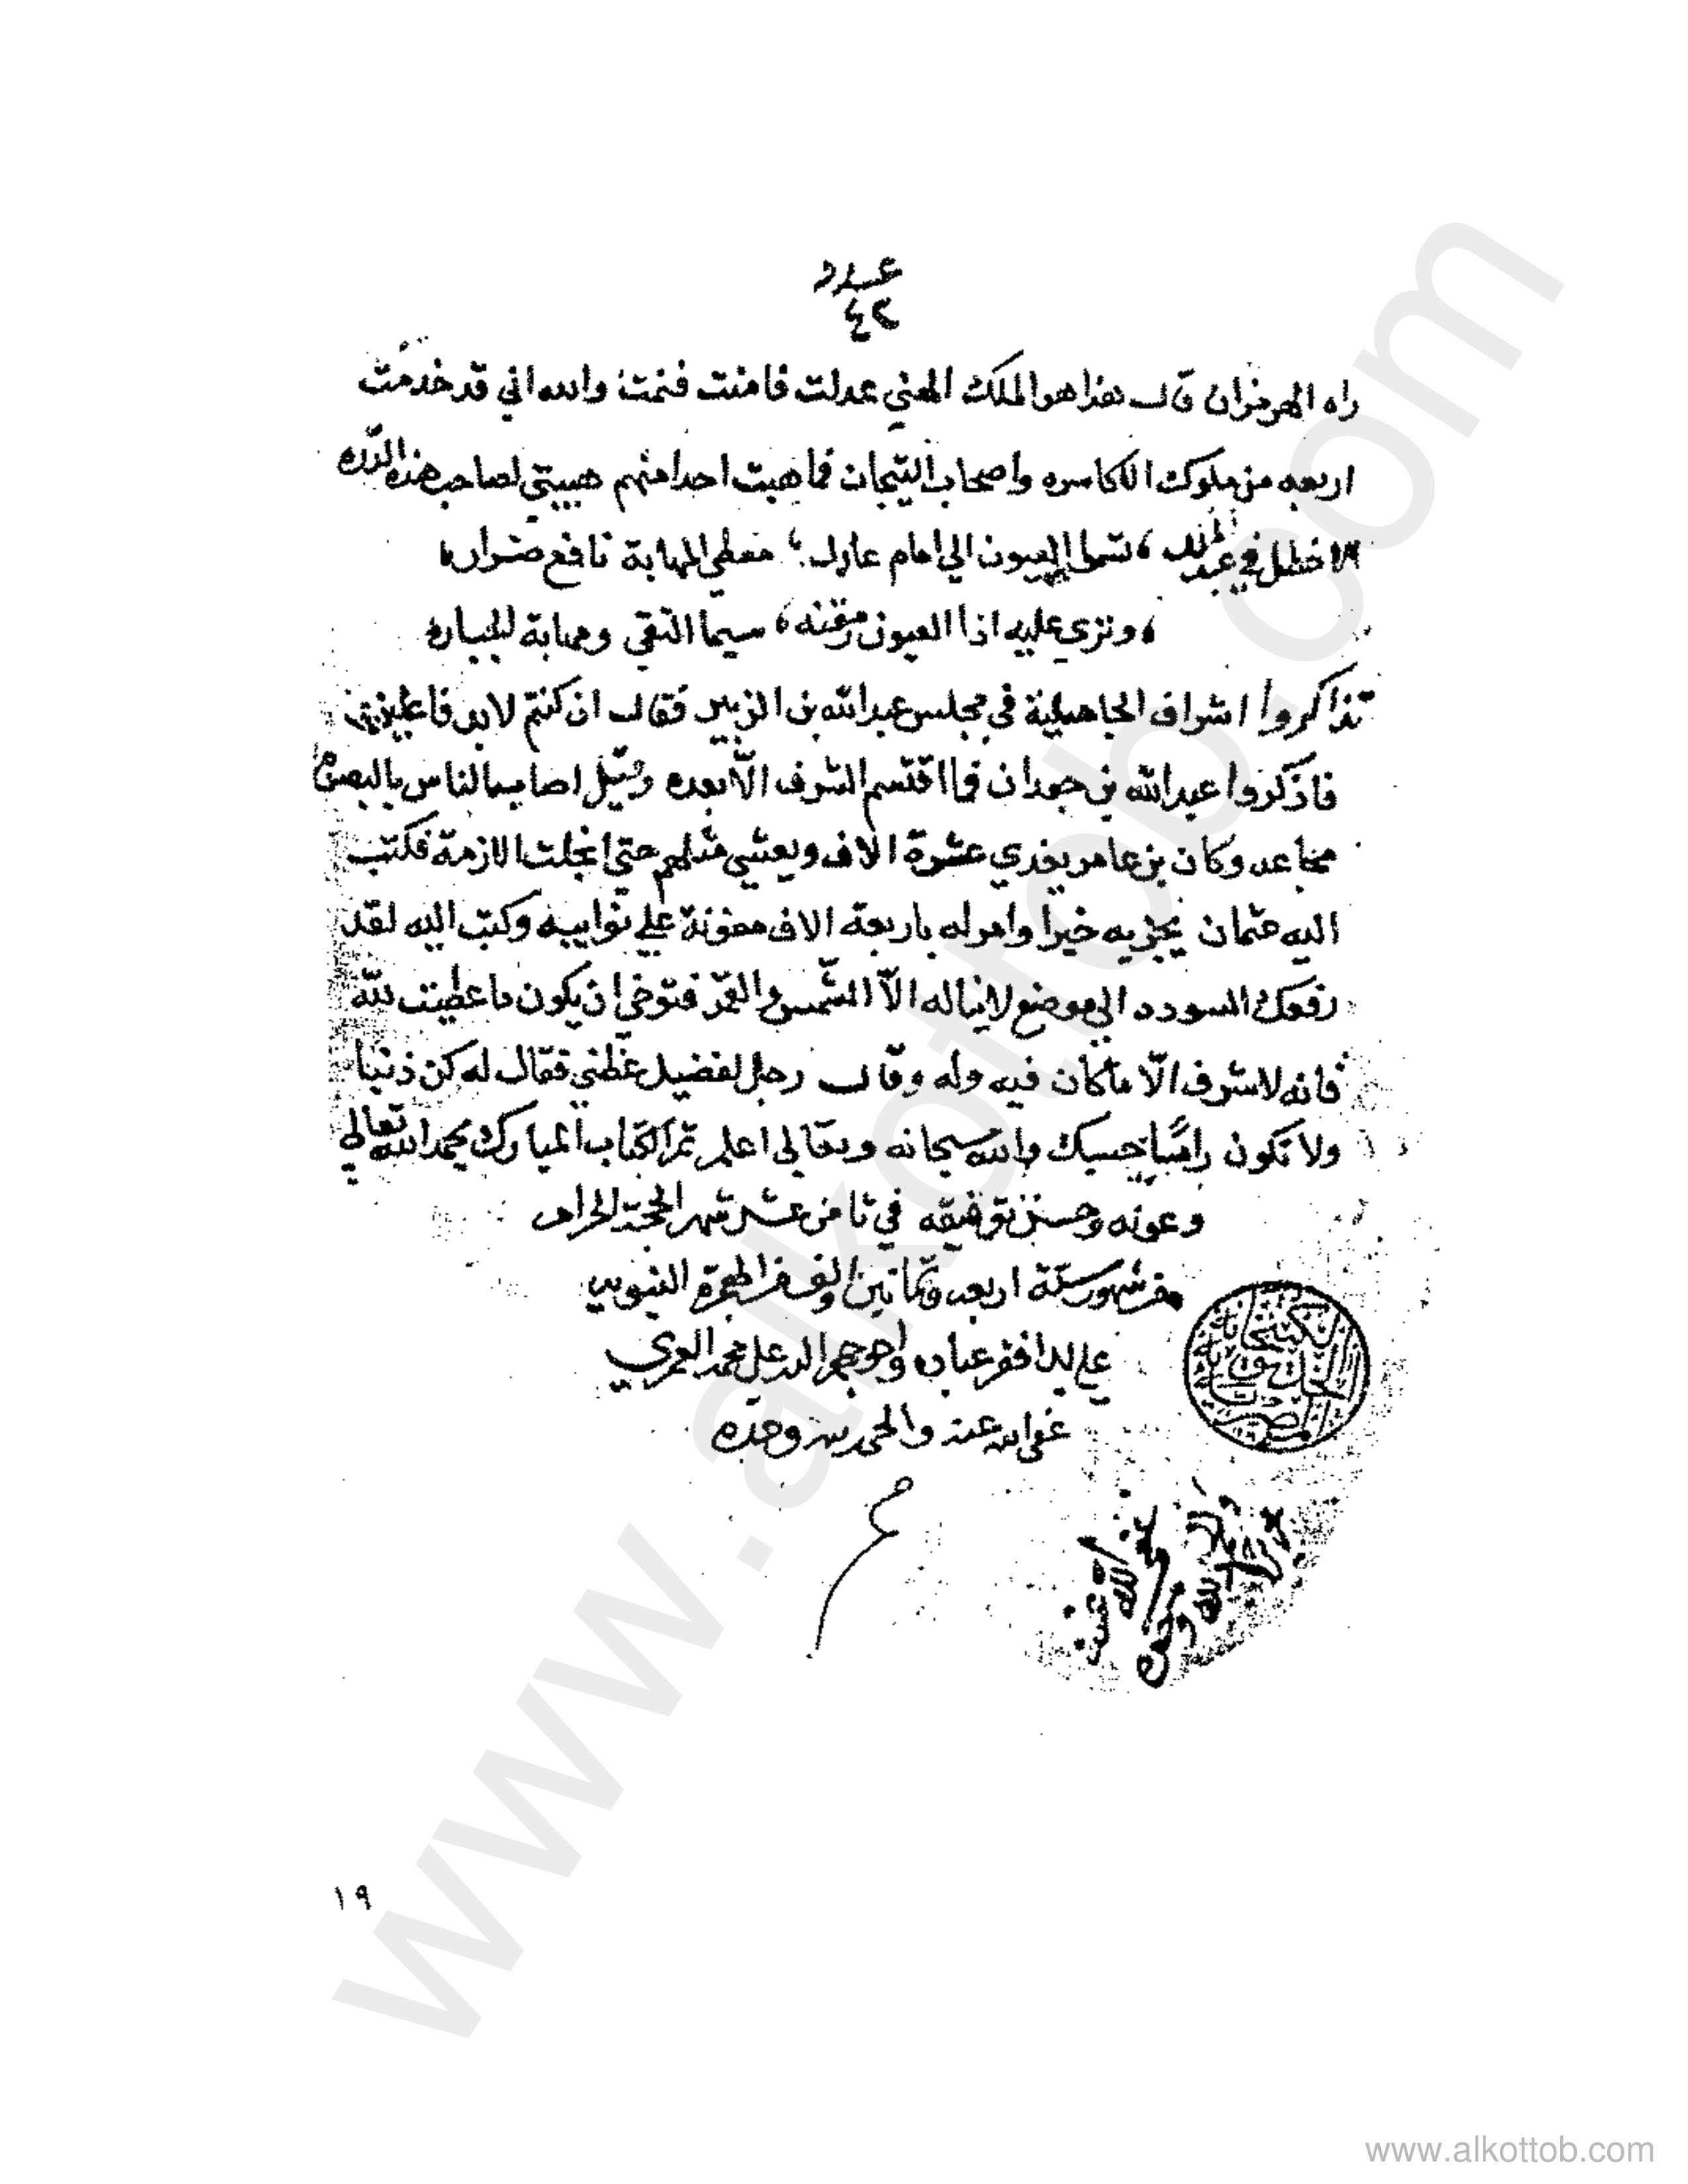 عدد
٤٢
راه الهرمزان قال هذا هو الملك الهني عدلت فامنت فنمت والله اني قد خدمت
اربعه من ملوك الاكاسره واصحاب التيجان فما هبت احدا منهم هيبتي لصاحب هذه الدره
الاخطل في عبد الملك، تسموا العيون الي امام عادل، معطي المهابة نافع ضرار،
، وتري عليه اذا العيون رمقنه، سيما التقي ومهابة الجبار
تذاكروا اشراف الجاهلية في مجلس عبدالله بن الزبير فقال ان كنتم لابد فاعلين
فاذكروا عبدالله بن جدعان فما اقتسم الشرف الا بعده اصاب الناس بالبصره
مجاعه وكان بن عامر يغدي عشرة الاف ويعشي مثلهم حتي انجلت الازمة فكتب
اليه عثمان يجزيه خيرا وامر له باربعة الاف معونة علي نوايبه وكتب اليه لقد
رفعك السودد الي موضع لا يناله الا الشمس والقمر فتوخي ان يكون ما اعطيت لله
فانه لا شرف الا ما كان فيه وله وقال رجل لفضيل عظني فقال له كن ذنبا
ولا تكون راسا حسبك والله سبحانه وتعالى اعلم تم الكتاب المبارك بحمد الله تعالي
وعونه وحسن توفيقه في ثامن عشر شهر الحجة الحرام
من شهور سنة اربعه وثمانين والف من الهجرة النبويه
علي يد افقر عباده واحوجهم اليه علي محمد العمري
عفي الله عنه والحمد لله وحده
م
الكتبخانة
١٩
www.alkottob.com
www.alkottob.com